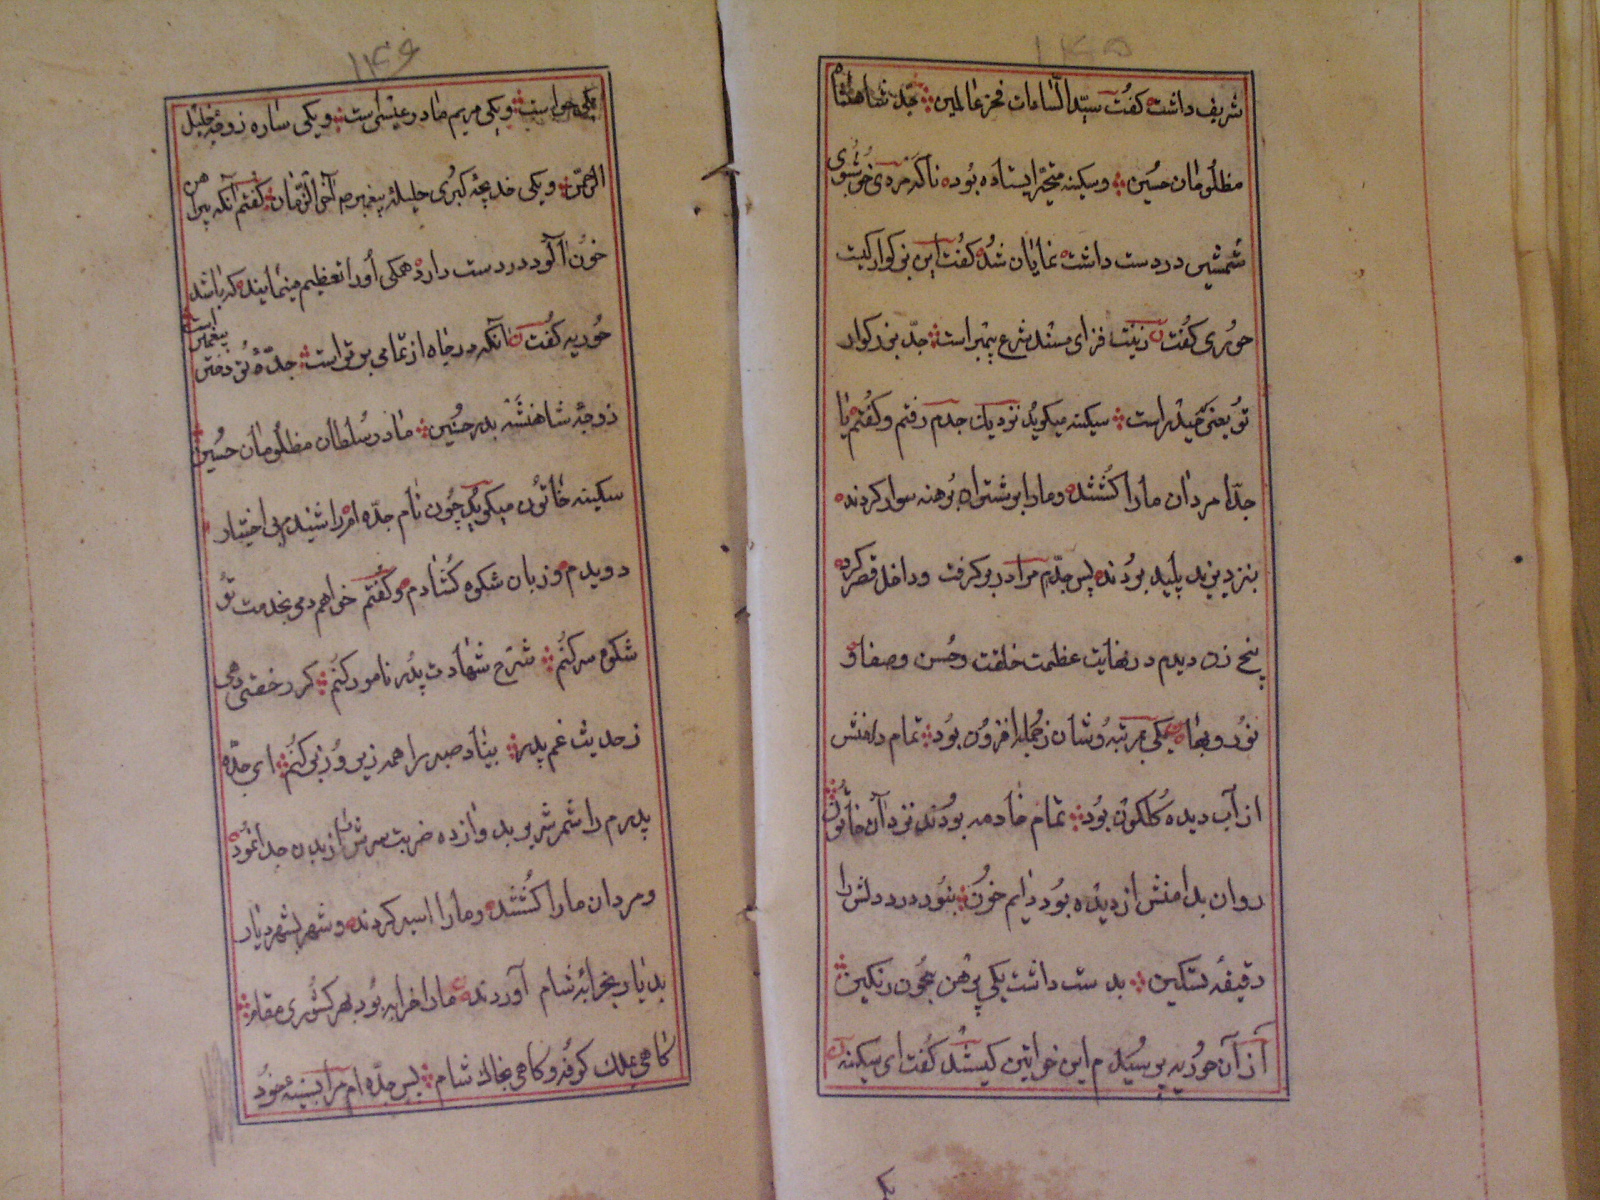 ۱۴۵
شریف داشت کفت سیّد السّاءات فخر عالمین جدّ شاهنشاه
مظلومان حسین وسکینه متحیّر ایستاده بوده ناکه مردی خوشروی
شمشیر در دست داشت نمایان شد کفت این بزرکوار کیست
حوری کفت زینت فزای مسند شرع پیمبر است جدّ بزرکوار
تو یعنی حیدر است سکینه میکوید نزدیک جدم رفتم وکفتم یا
جدّا مردان مارا کشتند ومارا بر شتران برهنه سوار کردند
بنزد یزید پلید بردند پس جدّم مرا در بر کرفت وداخل قصر کرد
پنج زن دیدم در نهایت عظمت خلقت وحسن وصفا و
نور وبها یکی بمرتبه وشان زجمله افزون بود تمام دامنش
از آب دیده کلکون بود تمام خادمه بودند نزد آن خاتون
روان بدامنش از دیده بود دایم خون نبود درد دلش را
دقیقهٔ تسکین بدست داشت یکی پرهن بخون رنکین
از آن حوریه پرسیدم این خواتین کیستند کفت ای سکینه
یکی
۱۴۶
یکی حوا است ویکی مریم مادر عیسی است ویکی ساره زوجهٔ خلیل
الرحمن ویکی خدیجهٔ کبری حلیلهٔ پیغمبر آخر الزّمان کفتم آنکه پیراهن
خون آلود در دست دارد همکی اورا تعظیم مینمایند که باشد
حوریه کفت آنکه درجاه از تمامی برتر است جدّهٔ تو دختر پیغمبر است
زوجهٔ شاهنشه بدر حنین مادر سلطان مظلومان حسین
سکینه خاتون میکوید چون نام جدّه ام را شنید بی اختیار
دویدم وزبان شکوه کشادم وکفتم خواهم دمی بخدمت تو
شکوه سر کنم شرح شهادت پدر نامور کنم کر رخصتی دهی
زحدیث غم پدر بنیاد صبر را همه زیر وزبر کنم ای جدّه
پدرم را شمر شریر بد وازده ضربت سرش از بدن جدا نمود
ومردان مارا کشتند ومارا اسیر کردند وشهر بشهر دیار
بدیار بخرابهٔ شام آوردند مارا خرابه بود بهر کشوری مقام
کاهی بملک کوفه وکاهی بخاک شام پس جدّه ام مرا بسینهٔ خود